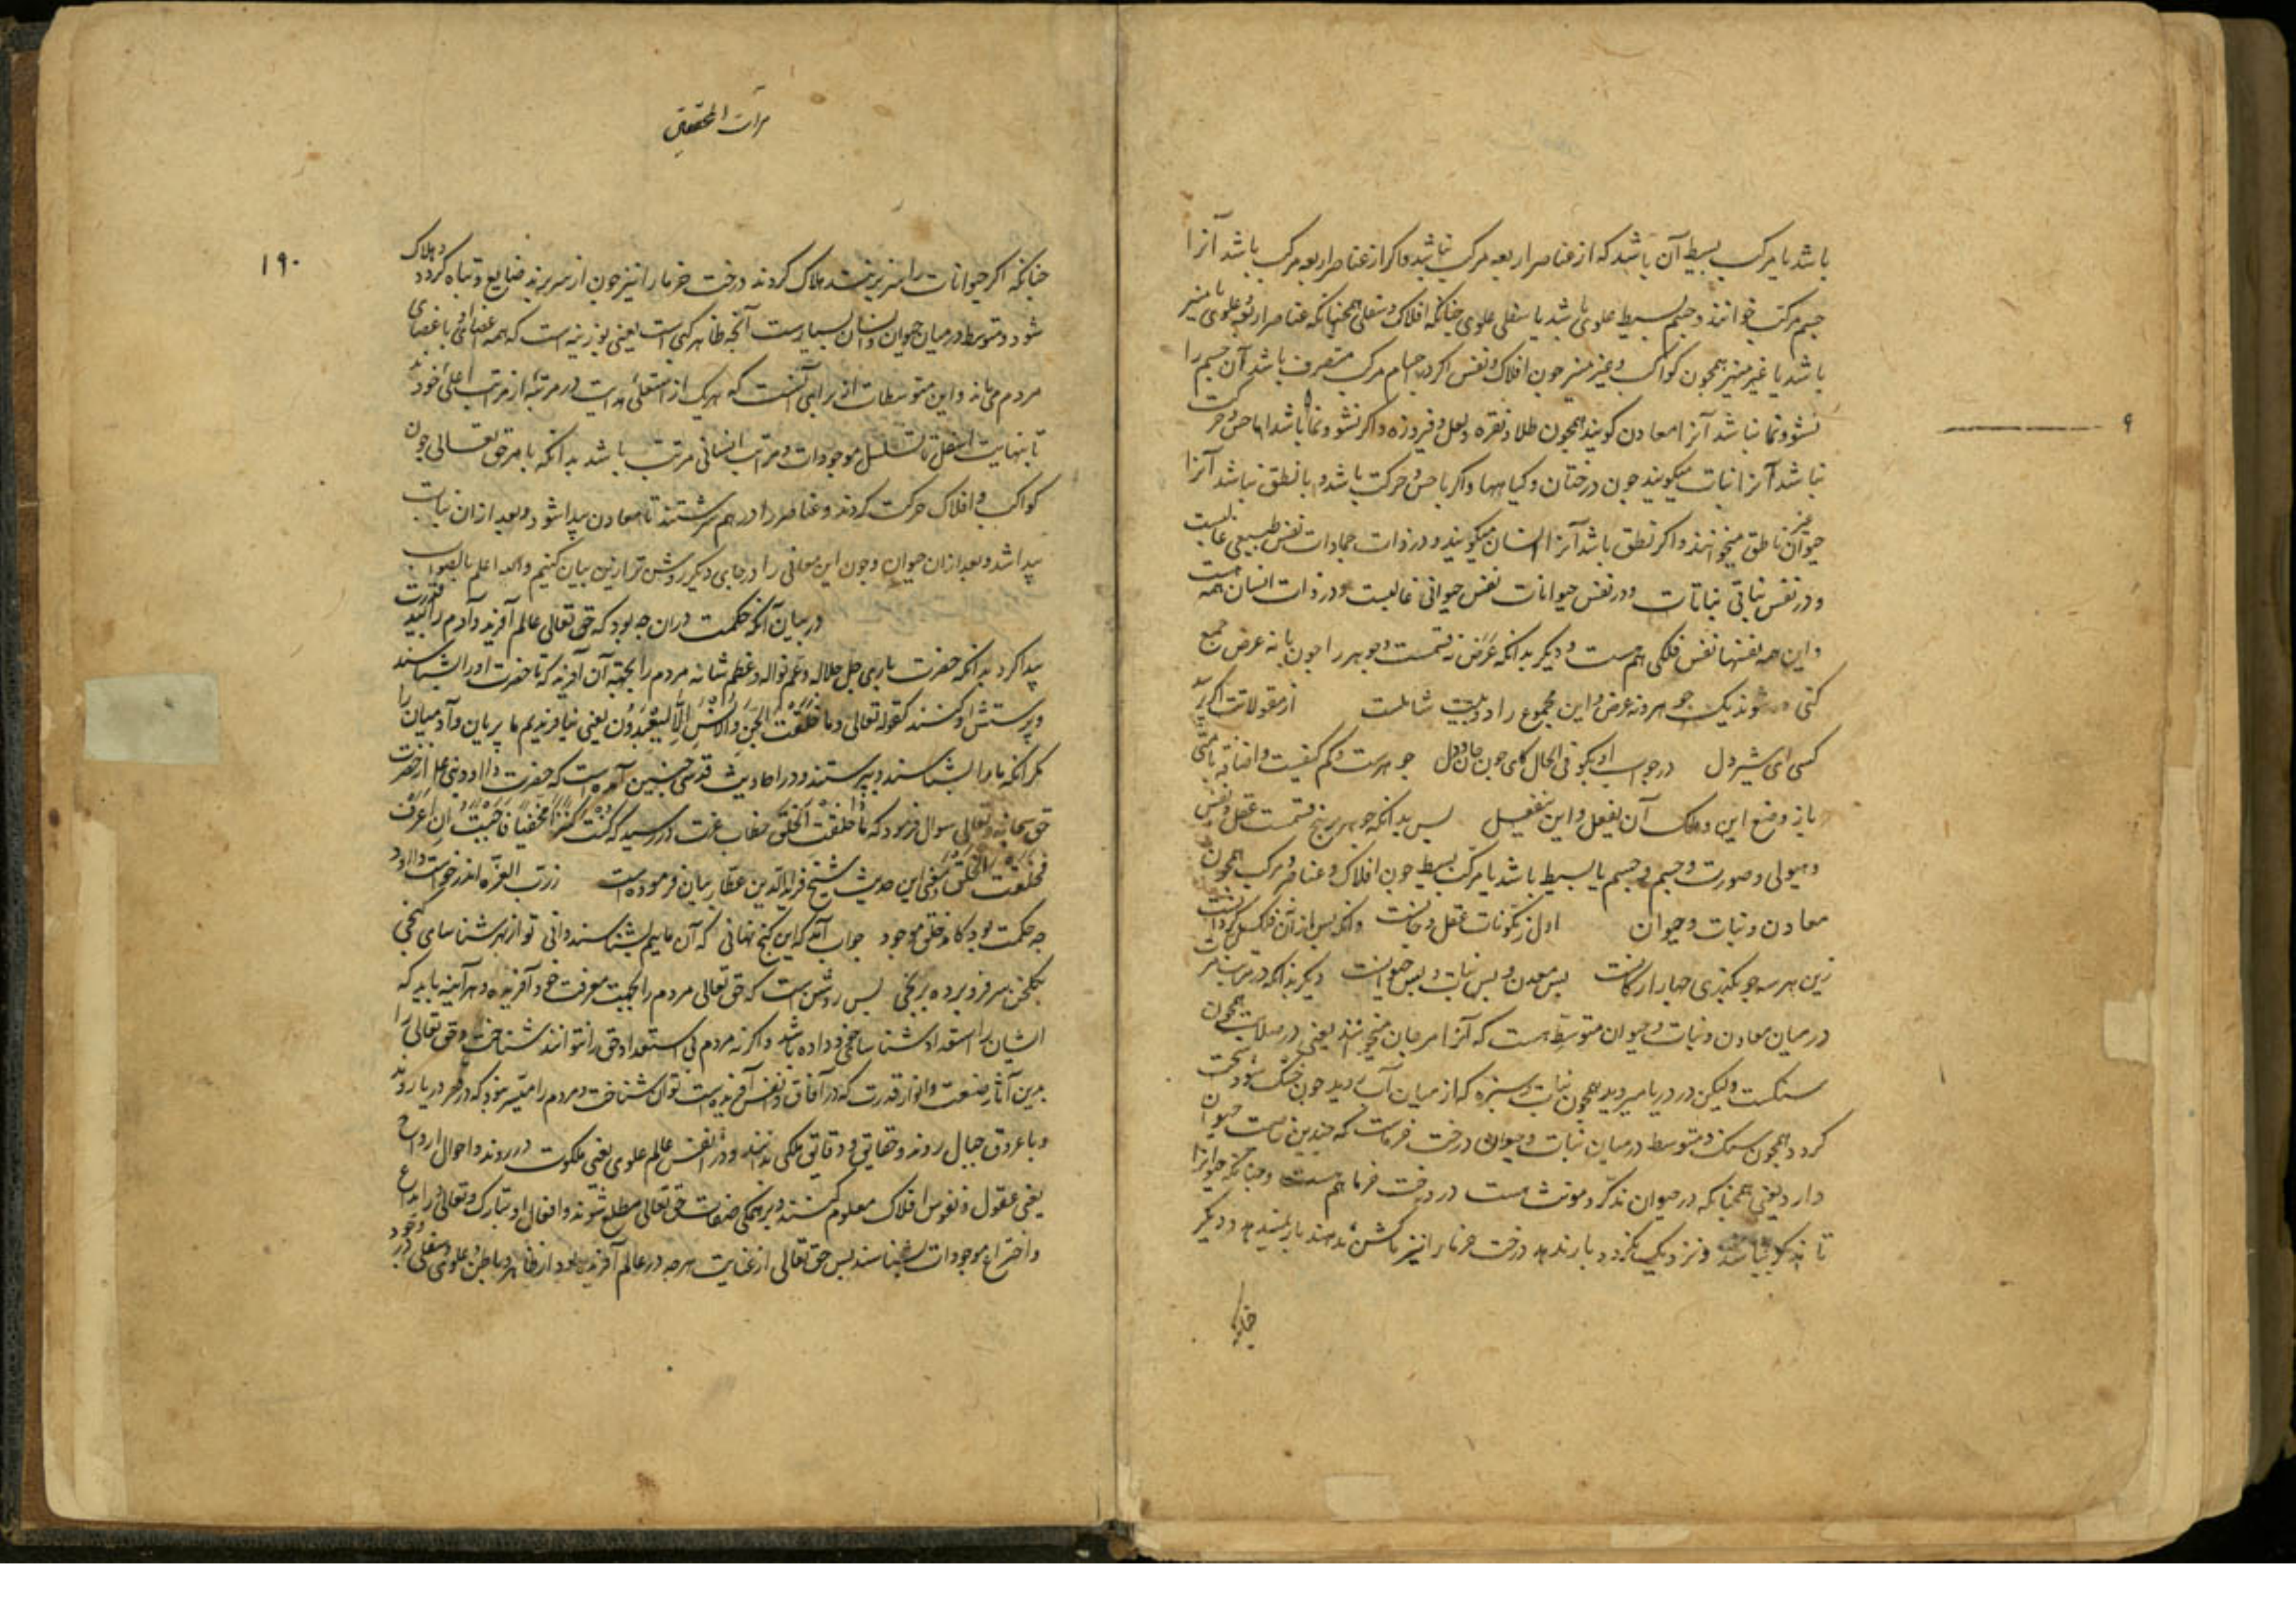 باشد یا مرکب بسیط آن باشد که از عناصر اربعه مرکب نباشد و اکر از عناصر اربعه مرکب باشد آنرا
جسم مرکب خوانند و جسم بسیط علوی باشد یا سفلی علوی چنانکه افلاک و سفلی همچنانکه عناصر اربعه و علوی یا منیر
باشد یا غیر منیر همچون کواکب و غیر منیر چون افلاک و نفس اکر در اجسام مرکب متصرف باشد آن جسم را
نشو و نما نباشد آنرا معادن کویند همچون طلا و نقره و لعل و فیروزه و اکر نشو و نما باشد اما حس و حرکت
۹
نباشد آنرا نبات میکویند چون درختان و کیاهها و اکر با حس و حرکت باشد و با نطق نباشد آنرا
حیوان غیر ناطق میخوانند و اکر نطق باشد آنرا انسان میکویند و در ذوات جمادات نفس طبیعی غالبست
و در نفس نباتی نباتات و در نفس حیوانات نفس حیوانی غالبست و در ذوات انسان همه هست
و این همه نفسها نفس فلکی هم هست و دیکر بدانکه عرض نه قسمت و جوهر را چون با نه عرض جمع
کنی ده شوند یک جوهر و نه عرض و این مجموع را دو بیت شاملست از مقولات اکر پرسد
کسی ای شیر دل در جواب او بکو فی الحال کای چون جان و دل جوهرست و کم کیفیت و اضافه با متی
باز وضع این و ملک آن یفعل و این ینفعل پس بدانکه جوهر بر پنج قسمت عقل و نفس
و هیولی و صورت و جسم و جسم یا بسیط باشد یا مرکب بسیط چون افلاک و عناصر و مرکب همچون
معادن و نبات و حیوان اول ز مکونات عقل و جانست وانکه پس از آن فلک کردانست
زین هر سه چو بکذری چهار ارکانست پس معدن و پس نبات و پس حیوانست دیکر بدانکه در مرتبات
در میان معادن و نبات و حیوان متوسط هست که آنرا مرجان میخوانند یعنی در صلابت همچون
سنکست ولیکن در دریا میروید همچون نبات و سبزه که از میان آب روید چون خشک شود سخت
کردد همچون سنک و متوسط در میان نبات و حیوان درخت خرماست که چندین خاصیت حیوان
دارد یعنی همچنانکه در حیوان مذکر و مونث هست در درخت خرما هم هست و چنانکه حیوانرا
تا نر نباشد و نزدیک نکردد بار ندهد درخت خرما را نیز تا کشن ندهند بار ندهد و دیکر
چنانکه
مرآت المحققین
۱۹۰
چنانکه اکر حیوانات را سر برند هلاک کردند درخت خرما را نیز چون از سر برند ضایع و تباه کردد و هلاک
شود و متوسط در میان حیوان و انسان بسیارست آنچه ظاهر کی است یعنی بوزینه است که همه اعضا او با اعضای
مردم می ماند و این متوسطات از برای آنست که هر یک از اسفل مرتبه از مراتب اعلی خود
تا نهایت اسفل تا تسلسل موجودات و مراتب انسانی مرتب باشد بدانکه بامر حق تعالی چون
کواکب و افلاک حرکت کردند و عناصر را در هم سرشتند تا معادن پیدا شود و بعد از آن نبات
پیدا شد و بعد از آن حیوان و چون این معانی را در جای دیکر روشن تر ازین بیان کنیم والله اعلم بالصواب
در بیان آنکه حکمت در آن چه بود که حق تعالی عالم آفرید و آدم را بید قدرت
پیدا کرد بدانکه حضرت باری جل جلاله و عم نواله و عظم شانه مردم را بجهت آن آفرید که تا حضرت او را بشناسند
و پرستش او کنند کقوله تعالی و ما خلقت الجن والانس الا لیعبدون یعنی نیافریدیم ما پریان و آدمیان را
مکر آنکه ما را بشناسند و بپرستند و در احادیث قدسی چنین آمده است که حضرت داود نبی از حضرت
حق سبحانه و تعالی سوال فرمود که لماذا خلقت الخلق خطاب عزت در رسید که کنت کنزا مخفیا فاحببت ان اعرف
فخلقت الخلق و معنی این حدیث شیخ فرید الدین عطار بیان فرموده است ز رب العزه اندر خواست داود
چه حکمت بود کامد خلق موجود جواب آمد که این کنج نهانی که آن ماییم بشناسند دانی تو از بهر شناسای کنجی
بکلخن سر فرو برده برنجی پس روشن است که حق تعالی مردم را بجهت معرفت خود آفریده و هر آینه باید که
ایشان را استعداد شناسایی خود داده باشد و اکر نه مردم بی استعداد حق را نتوانند شناخت و حق تعالی را
بدین آثار صنعت و انوار قدرت که در آفاق و انفس آفریده است توان شناخت و مردم را میسر نبود که در قعر دریا روند
و با عروق جبال روند و حقایق و دقایق ملکی بدانند و در انفس عالم علوی یعنی ملکوت در روند و احوال ارواح
یعنی عقول و نفوس افلاک معلوم کنند و بر همکی صفات حق تعالی مطلع شوند و افعال او تبارک و تعالی را ابداع
و اختراع موجودات بشناسند پس حق تعالی از عنایت هر چه در عالم آفریده بود از ظاهر و باطن و علوی و سفلی در وجود